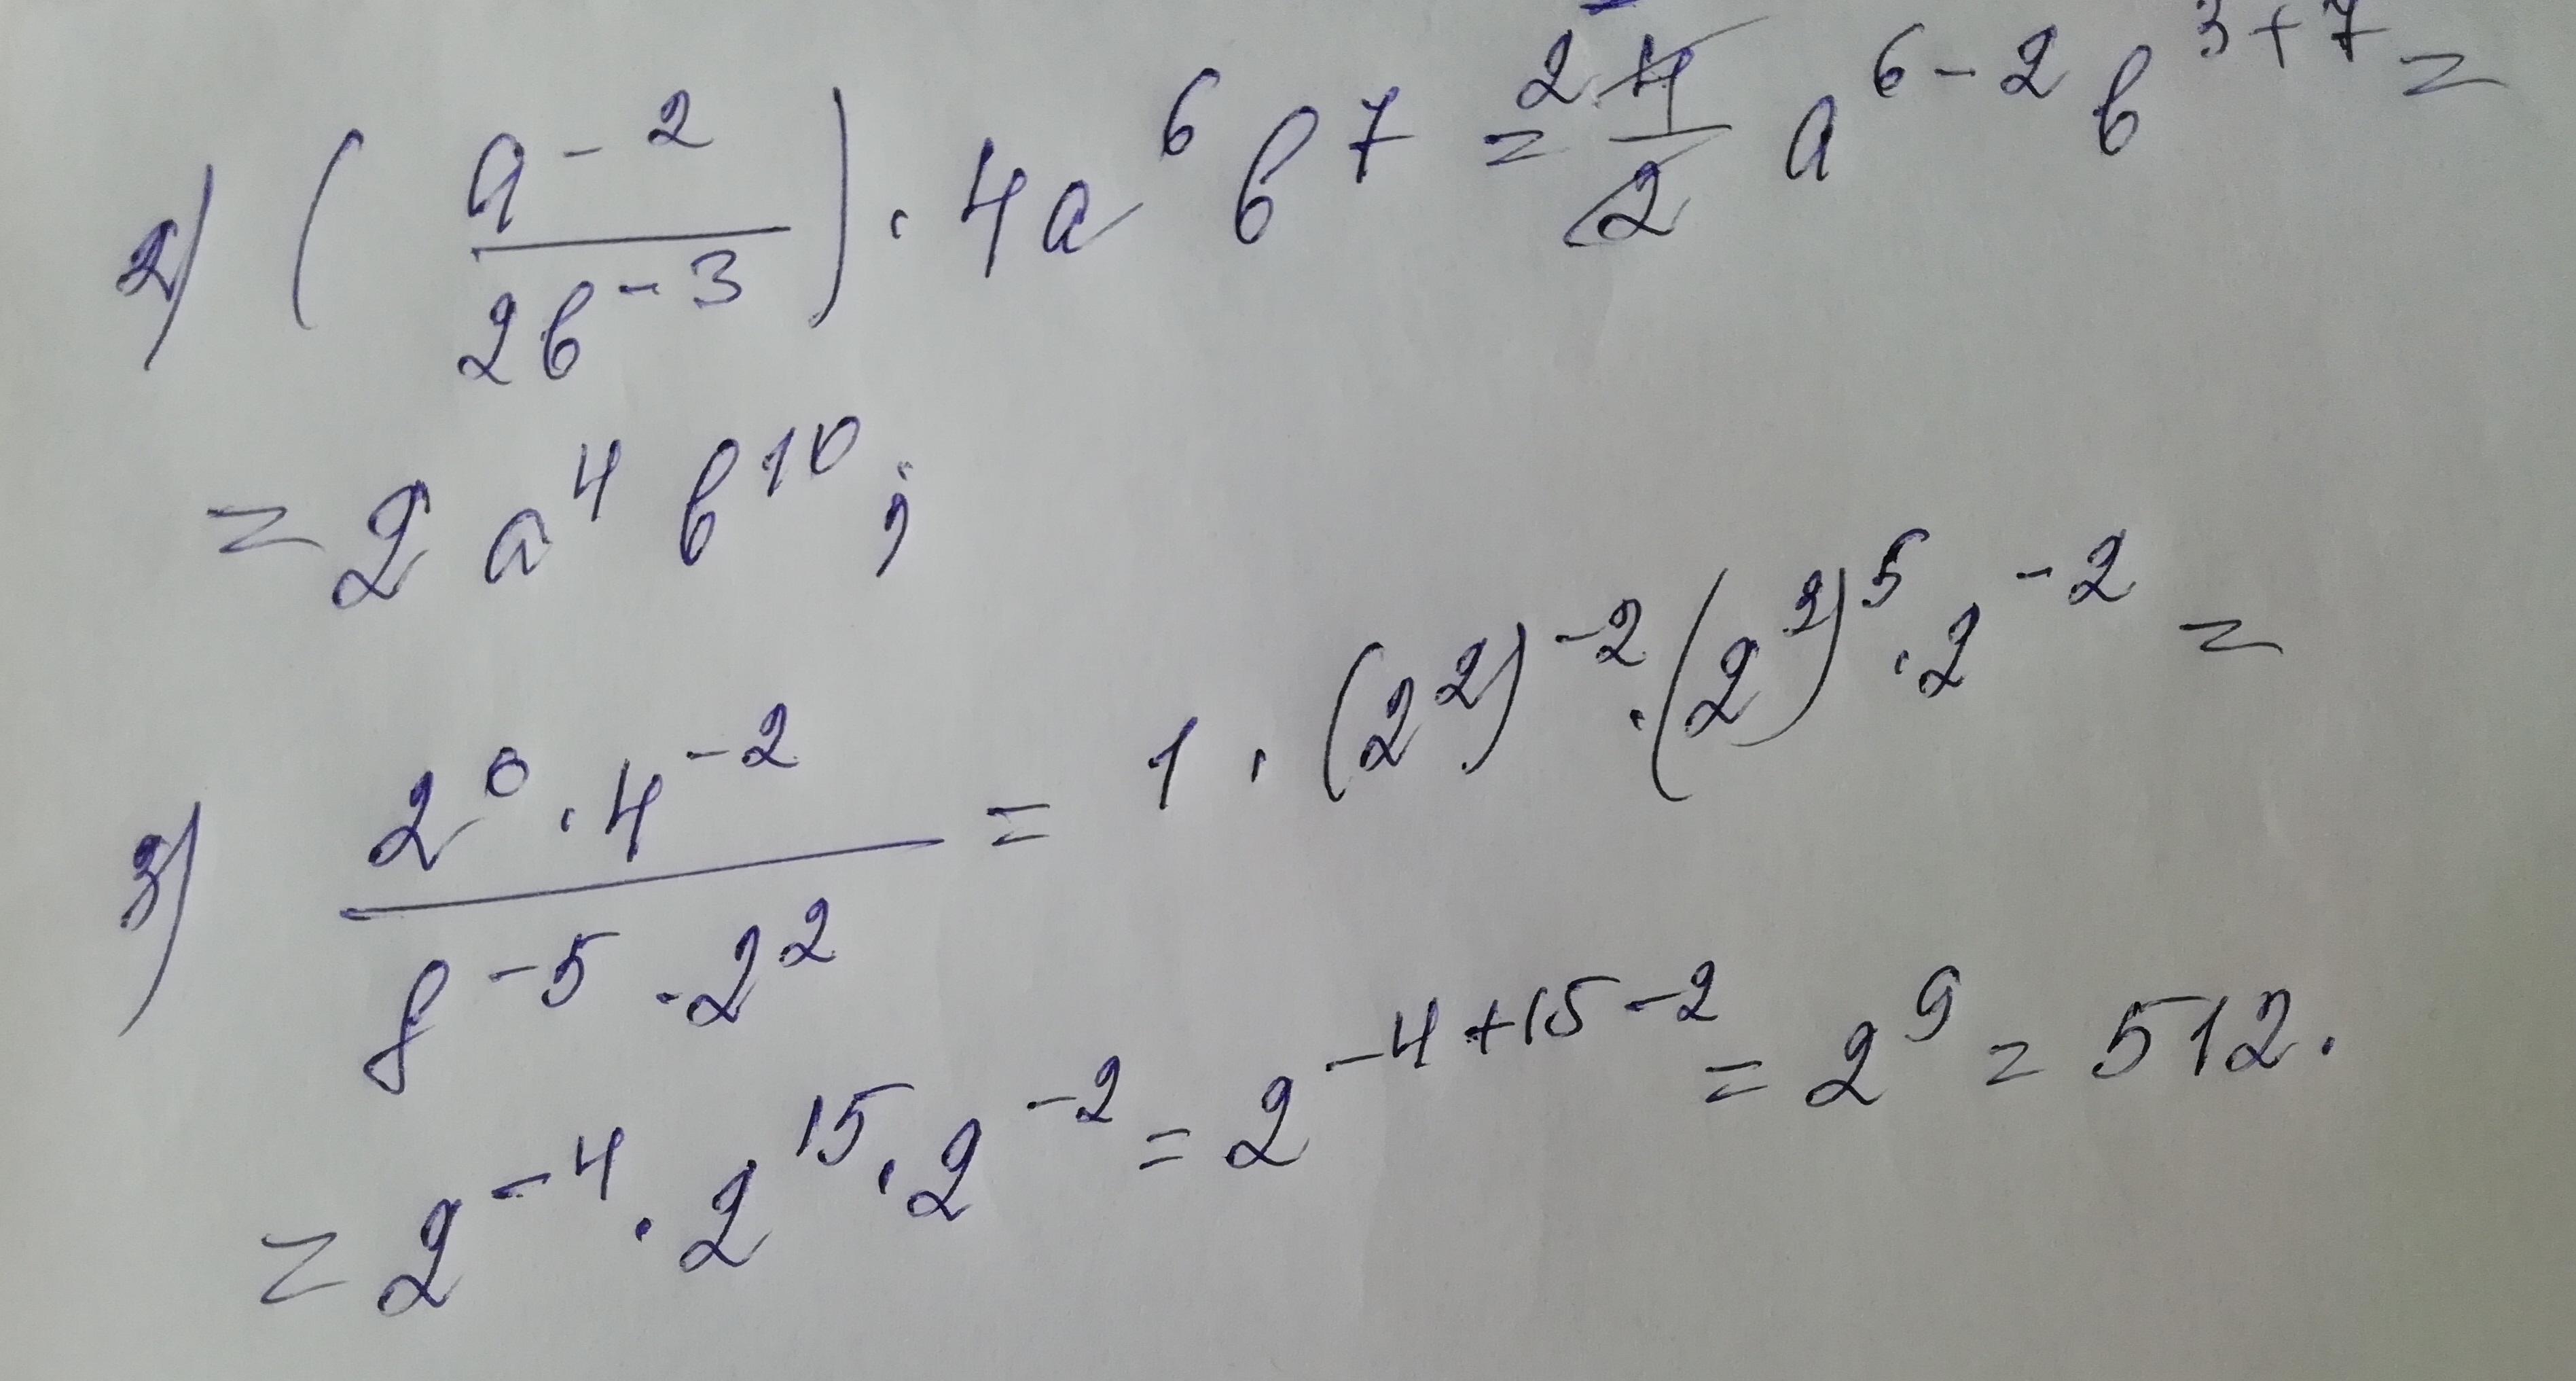 2) ( a^-2 / 2b^-3 ) · 4a^6 b^7 = 2 4/2 a^6-2 b^3+7 =
= 2 a^4 b^10 ;
3) 2^0 · 4^-2 / 8^-5 · 2^2 = 1 · (2^2)^-2 · (2^2)^5 · 2^-2 =
= 2^-4 · 2^15 · 2^-2 = 2^-4+15-2 = 2^9 = 512.